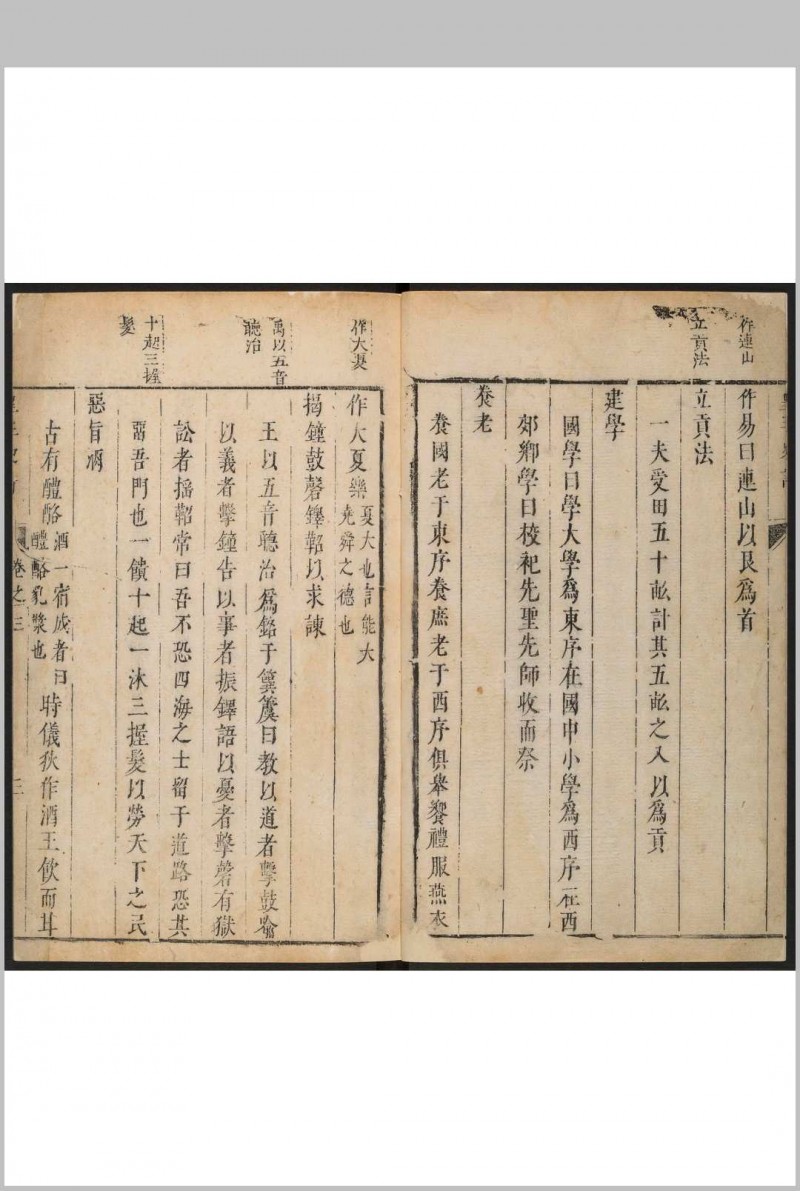 作連山
立貢法
作易曰連山以艮爲首
立貢法
一夫受田五十畝計其五畝之入以爲貢
建學
國學曰學大學爲東序在國中小學爲西序在西
郊鄉學曰校祀先聖先師收而祭
養老
養國老于東序養庶老于西序俱舉饗禮服燕衣
作大夏
禹以五音
聽治
十起三握
髮
作大夏樂夏大也言能大
堯舜之德也
揭鐘鼓磬鐸鞀以求諫
王以五音聽治爲銘于簨簴曰教以道者擊鼓喻
以義者擊鐘告以事者振鐸語以憂者擊磬有獄
訟者搖鞀常曰吾不恐四海之士留于道路恐其
畱吾門也一饋十起一沐三握髮以勞天下之民
惡旨酒
古有醴酪酒一宿成者曰
醴酪乳漿也時儀狄作酒王飲而甘
卷之三
三